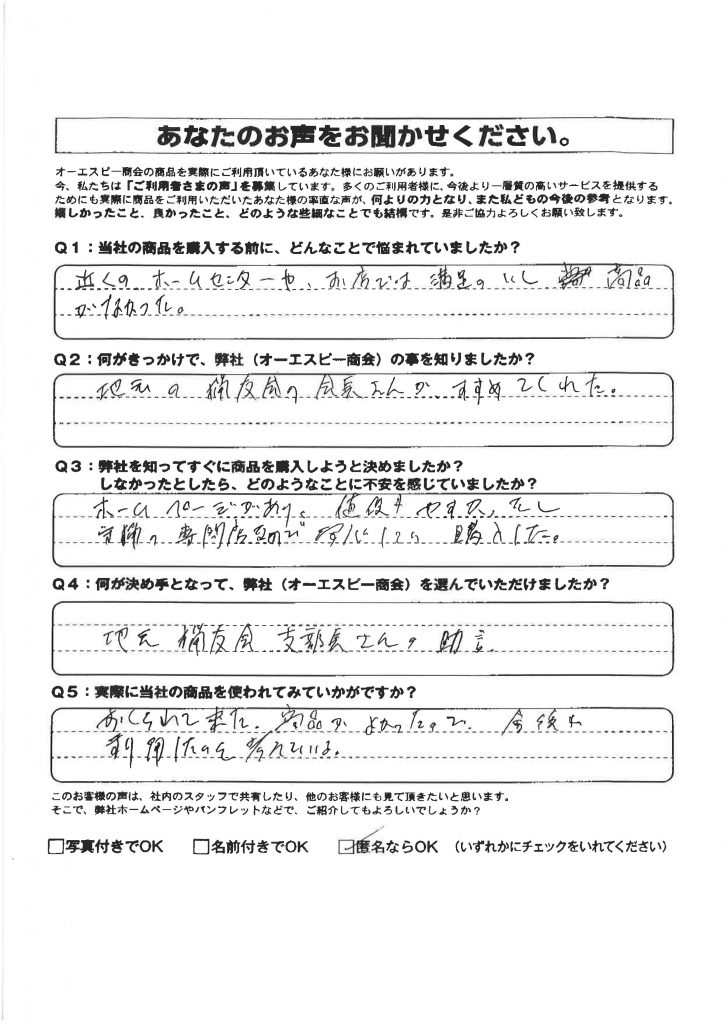 あなたのお声をお聞かせください。
オーエスピー商会の商品を実際にご利用頂いているあなた様にお願いがあります。
今、私たちは「ご利用者さまの声」を募集しています。多くのご利用者様に、今後より一層質の高いサービスを提供する
ためにも実際に商品をご利用いただいたあなた様の率直な声が、何よりの力となり、また私どもの今後の参考となります。
嬉しかったこと、良かったこと、どのような些細なことでも結構です。是非ご協力よろしくお願い致します。
Q1：当社の商品を購入する前に、どんなことで悩まれていましたか？
近くのホームセンターや、お店では満足のいし 商品
がなかった。
Q2：何がきっかけで、弊社（オーエスピー商会）の事を知りましたか？
地元の猟友会の会長さんが、すすめてくれた。
Q3：弊社を知ってすぐに商品を購入しようと決めましたか？
しなかったとしたら、どのようなことに不安を感じていましたか？
ホームページがあり、値段もやすかったし
専門店なので 購入した。
Q4：何が決め手となって、弊社（オーエスピー商会）を選んでいただけましたか？
地元 猟友会 支部長さんの助言
Q5：実際に当社の商品を使われてみていかがですか？
おくられて来た、商品がよかったので、今後も
利用したいと考えている。
このお客様の声は、社内のスタッフで共有したり、他のお客様にも見て頂きたいと思います。
そこで、弊社ホームページやパンフレットなどで、ご紹介してもよろしいでしょうか？
□写真付きでOK □名前付きでOK ☑匿名ならOK （いずれかにチェックをいれてください）